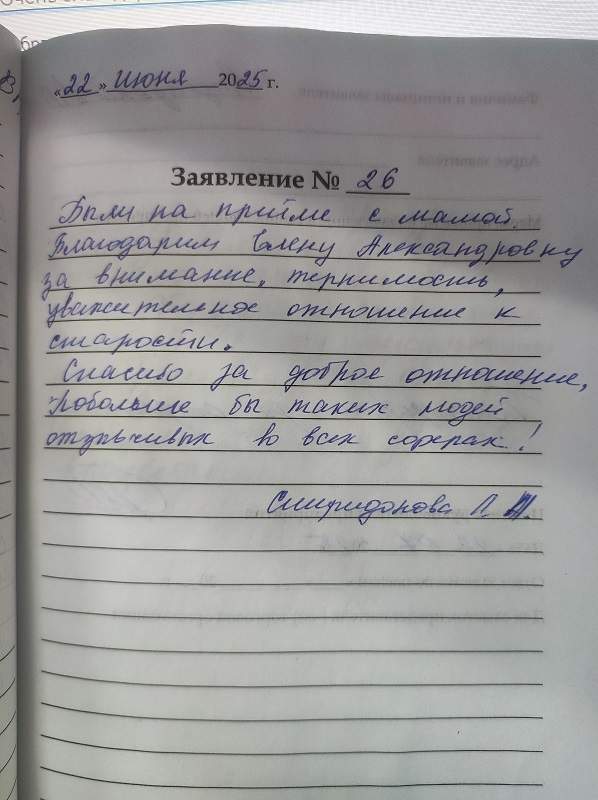 «22» Июня 2025 г.
Заявление № 26
Были на приёме с мамой.
Благодарим Елену Александровну
за внимание, терпимость,
уважительное отношение к
старости.
Спасибо за доброе отношение,
побольше бы таких людей
отзывчивых во всех сферах!
Спиридонова Л.